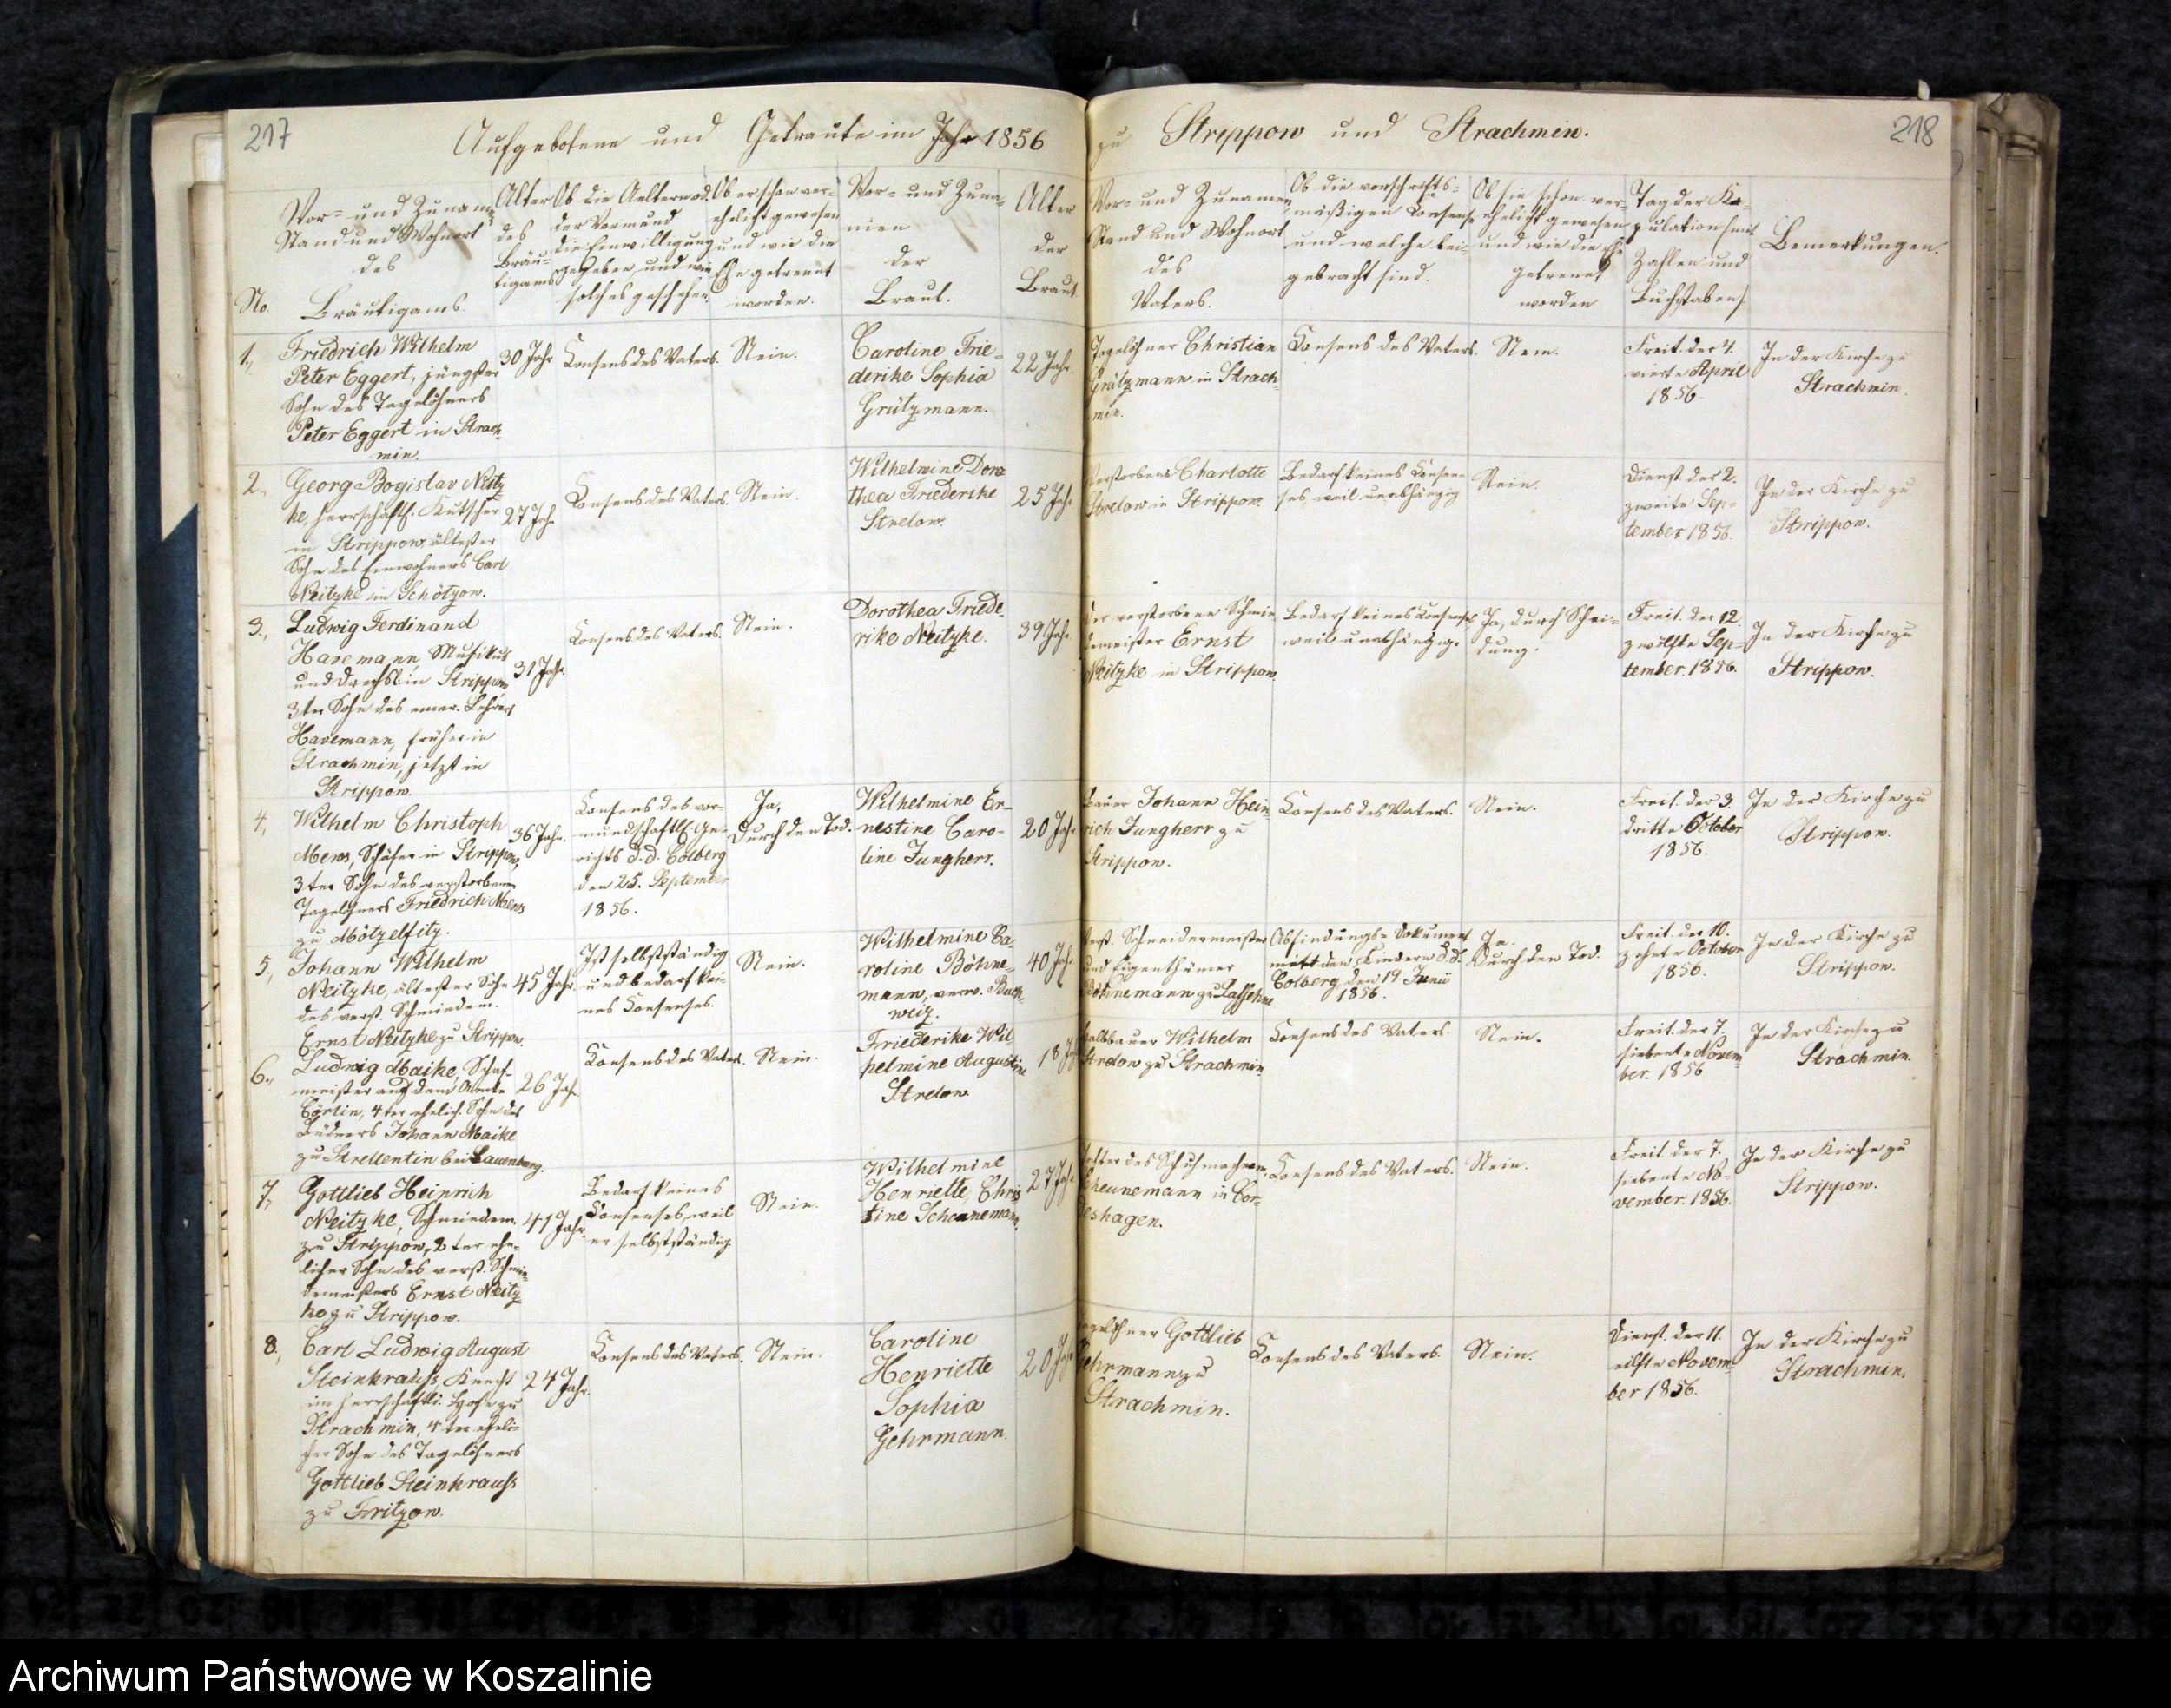 217
Aufgebotene und Getraute im Jahr 1856
zu Strippow und Strachmin.
218
No.
Vor- und Zuname
Stand und Wohnort
des
Bräutigams.
Alter
des
Bräu-
tigams
Ob die Aeltern od.
der Vormund
die Einwilligung
gegeben und wie
solches geschehen.
Ob er schon ver-
ehelicht gewesen
und wie die
Ehe getrennt
worden.
Vor- und Zuna-
men
der
Braut.
Alter
der
Braut.
Vor- und Zunamen
Stand und Wohnort
des
Vaters.
Ob die vorschrifts-
mäßigen Consense
und welche bei-
gebracht sind.
Ob sie schon ver-
ehelicht gewesen
und wie die Ehe
getrennt
worden
Tag der Ko-
pulation (mit
Zahlen und
Buchstaben)
Bemerkungen.
1.,
Friedrich Wilhelm
Peter Eggert, jüngster
Sohn des Tagelöhners
Peter Eggert in Strach-
min.
30 Jahr
Consens des Vaters.
Nein.
Caroline Frie-
derike Sophia
Grützmann.
22 Jahr.
Tagelöhner Christian
Grützmann in Strach-
min.
Consens des Vaters.
Nein.
Freit. der 4.
vierte April
1856.
In der Kirche zu
Strachmin.
2.,
Georg Bogislav Neitz-
ke, herrschaftl. Kutscher
in Strippow, ältester
Sohn des Einwohners Carl
Neitzke in Schötzow.
27 Jahr
Consens des Vaters.
Nein.
Wilhelmine Doro
thea Friederike
Strelow.
25 Jahr
Verstorbene Charlotte
Strelow in Strippow.
Bedarf keines Consen-
ses, weil unabhängig
Nein.
Dienst. der 2.
zweite Sep-
tember 1856.
In der Kirche zu
Strippow.
3.,
Ludwig Ferdinand
Havemann, Musikus
und Drechsl. in Strippow
3ter Sohn des emer. Lehrers
Havemann, früher in
Strachmin, jetzt in
Strippow.
31 Jahr.
Consens des Vaters.
Nein.
Dorothea Friede-
rike Neitzke.
39 Jahr
Der verstorbene Schmie-
demeister Ernst
Neitzke in Strippow.
Bedarf keines Consenses
weil unabhängig.
Ja, durch Schei-
dung.
Freit. der 12.
zwölfte Sep-
tember. 1856.
In der Kirche zu
Strippow.
4.,
Wilhelm Christoph
Mews, Schäfer in Strippow,
3ter Sohn des verstorbenen
Tagelöhners Friedrich Mews
zu Mötzelfitz.
36 Jahr.
Consens des vor-
mundschaftl. Ge-
richts d. d. Colberg
den 25. September
1856.
Ja,
Durch den Tod.
Wilhelmine Er-
nestine Caro-
line Jungherr.
20 Jahr
Bauer Johann Hein-
rich Jungherr zu
Strippow.
Consens des Vaters.
Nein.
Freit. der 3.
dritte October
1856.
In der Kirche zu
Strippow.
5.,
Johann Wilhelm
Neitzke, ältester Sohn
des verst. Schmiedem.
Ernst Neitzke zu Strippow.
45 Jahr.
Ist selbstständig
und bedarf kei-
nes Consenses.
Nein.
Wilhelmine Ca-
roline Böhne-
mann, verw.
40 Jahr.
Verst. Schneidermeister
und Eigenthümer
Böhnemann zu Lassehne
Abfindungs-Dokument
mit den Kindern d. d.
Colberg, den 19. Junii
1856.
Ja.
Durch den Tod.
Freit. der 10.
zehnte October
1856.
In der Kirche zu
Strippow.
6.,
Ludwig Maike, Schaf-
meister auf dem Amte
Cörlin, 4ter ehelich. Sohn des
Büdners Johann Maike
zu Strellentin bei Lauenburg.
26 Jahr.
Consens des Vaters.
Nein.
Friederike Wil
helmine Augustine
Strelow
18 Jahr
Halbbauer Wilhelm
Strelow zu Strachmin
Consens des Vaters.
Nein.
Freit. der 7.
siebente Novem-
ber. 1856
In der Kirche zu
Strachmin.
7.,
Gottlieb Heinrich
Neitzke, Schmiedem.
zu Strippow, 2ter ehe-
licher Sohn des verst. Schmie-
demeisters Ernst Neitz-
ke zu Strippow.
41 Jahr.
Bedarf keines
Consenses, weil
er selbstständig
Nein.
Wilhelmine
Henriette, Chris
tine Scheunemann.
27 Jahr
Tochter des Schuhmacherm.
Scheunemann in Cor-
deshagen.
Consens des Vaters.
Nein.
Freit. der 7.
siebente No-
vember. 1856.
In der Kirche zu
Strippow.
8.,
Carl Ludwig August
Steinkrauss, Knecht
im herrschaftl. Hofe zu
Strachmin, 4ter eheli-
cher Sohn des Tagelöhners
Gottlieb Steinkrauss
zu Fritzow.
24 Jahr.
Consens des Vaters.
Nein.
Caroline
Henriette
Sophia
Gehrmann.
20 Jahr
Tagelöhner Gottlieb
Gehrmann zu
Strachmin.
Consens des Vaters.
Nein.
Dienst. der 11.
eilfte Novem-
ber 1856.
In der Kirche zu
Strachmin.
Archiwum Państwowe w Koszalinie